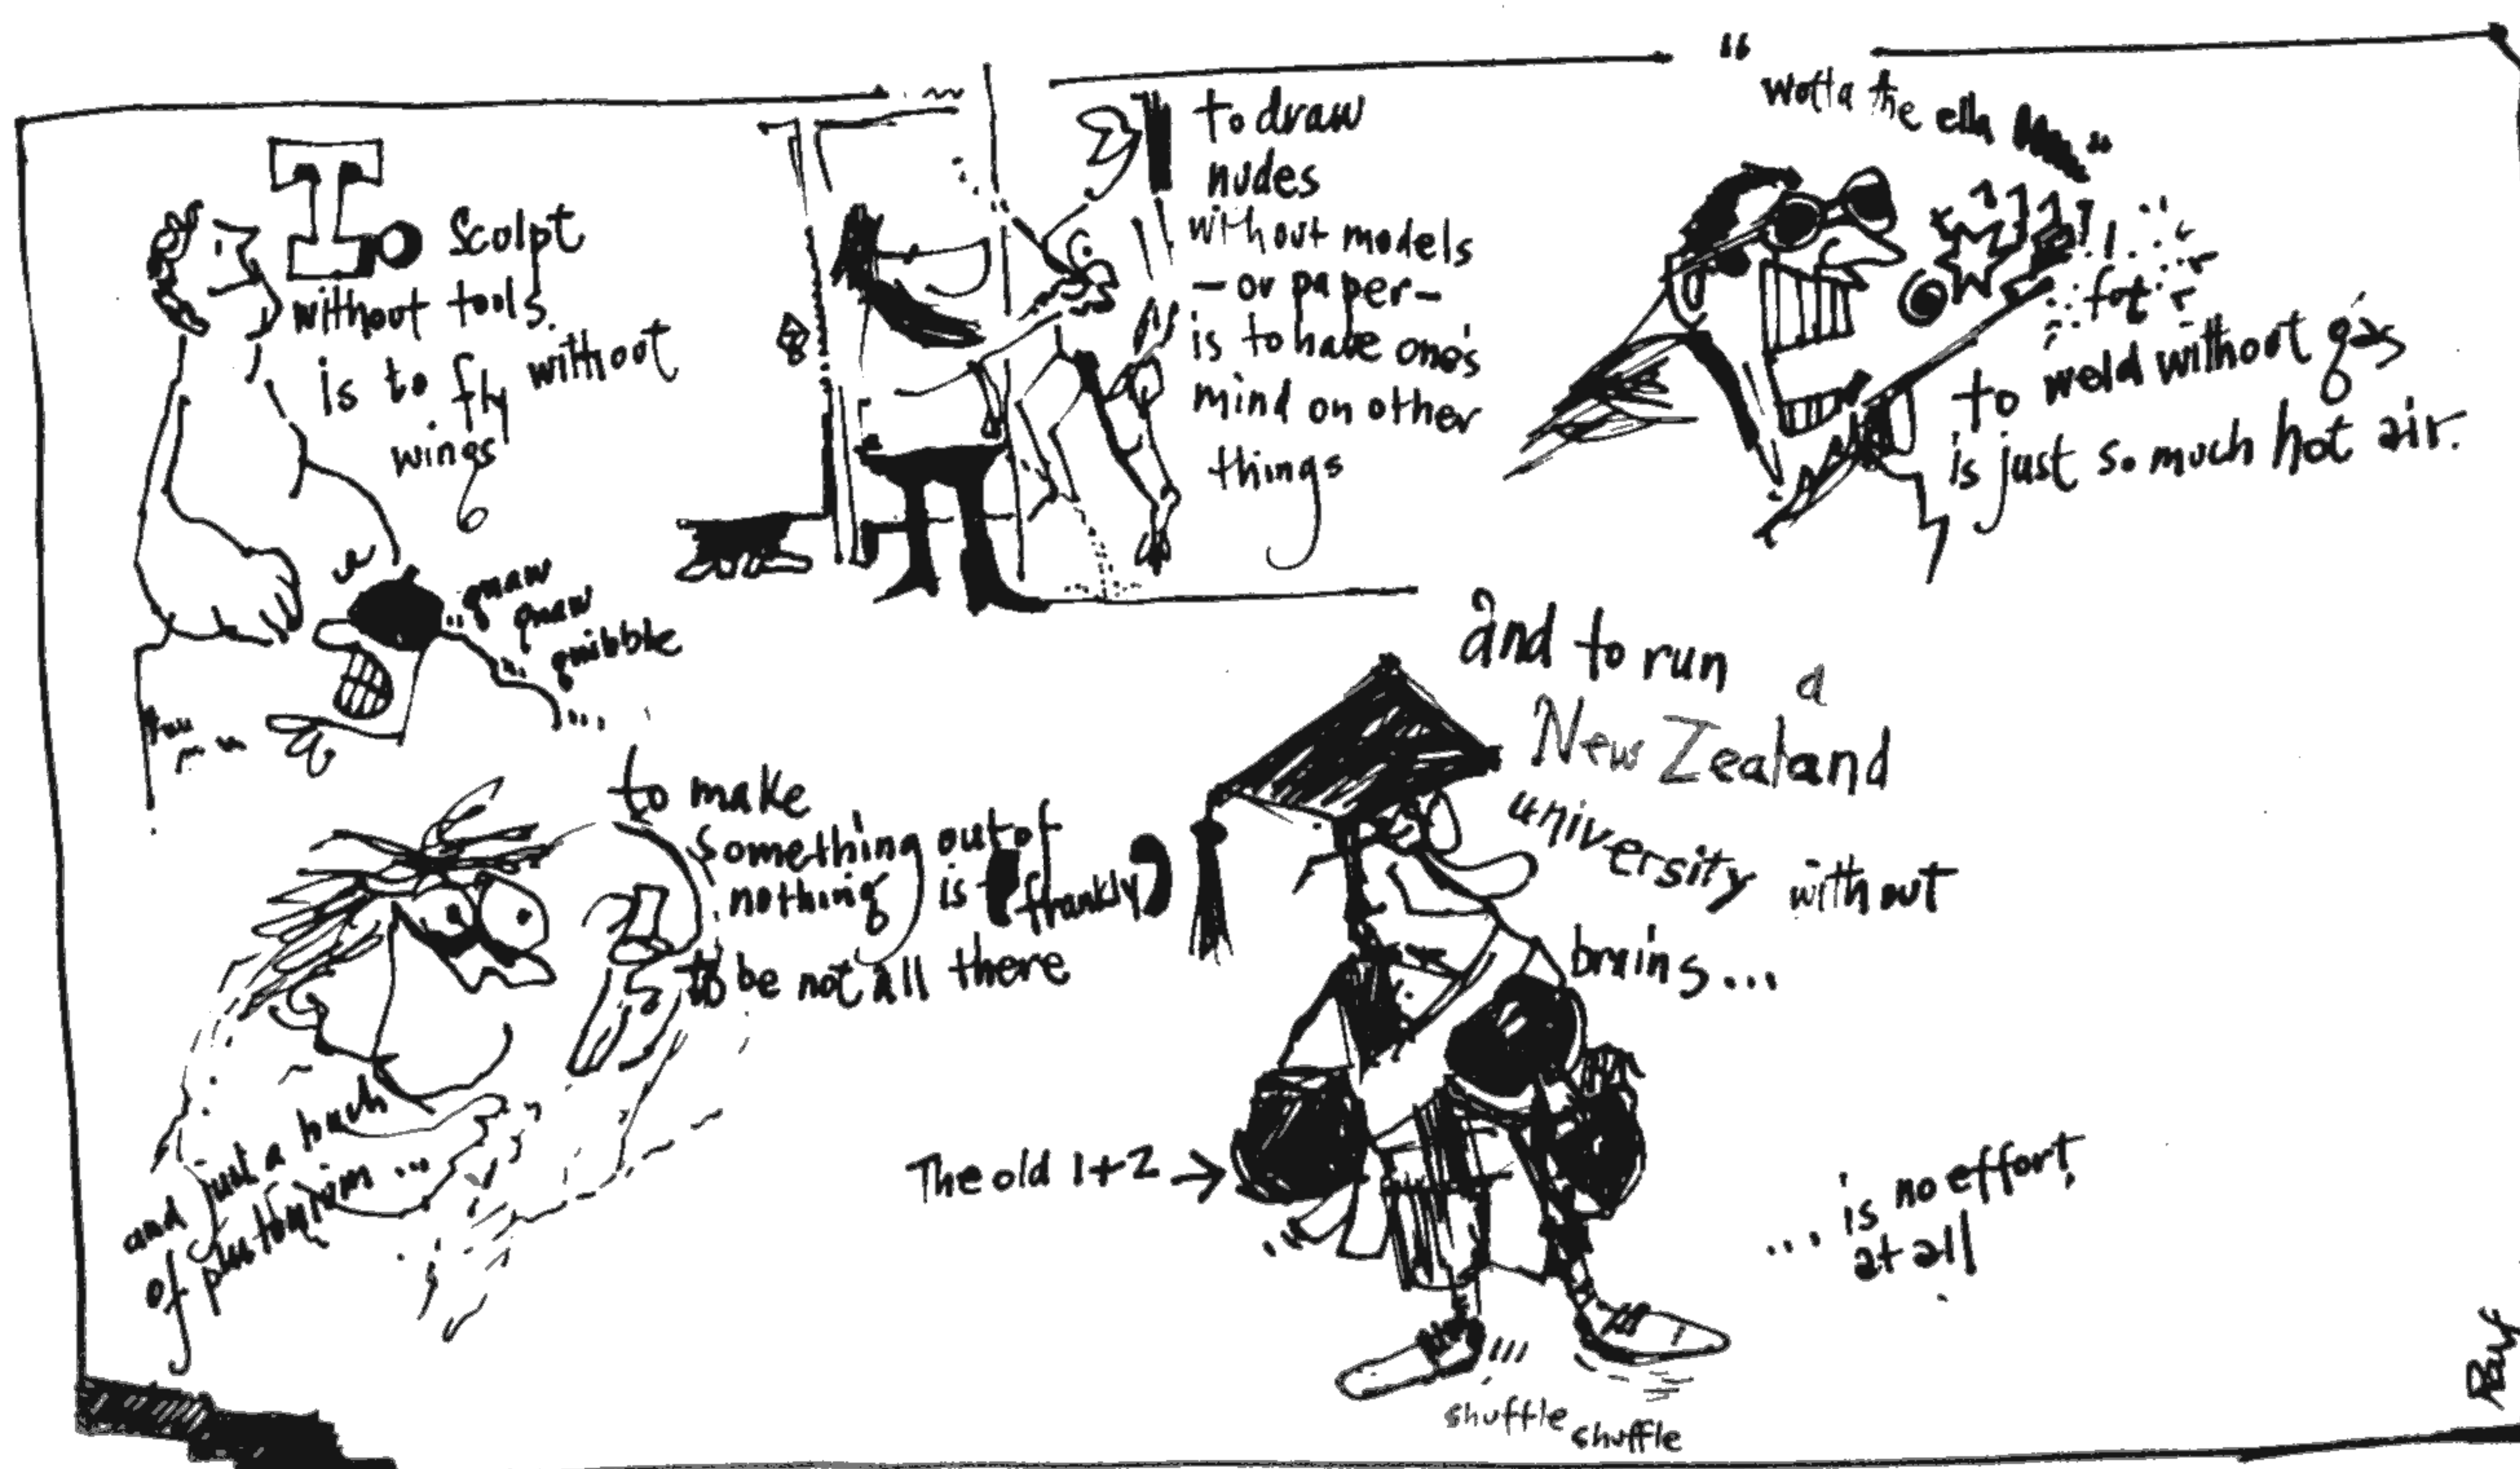 Sculpt
without tools.
is to fly without
wings
gnaw
gnaw
gnibble
to draw
nudes
without models
- or paper -
is to have one's
mind on other
things
"wotta the ella
fot
to weld without gas
is just so much hot air.
to make
something out of
nothing is (frankly)
to be not all there
and just a hach
of plutonium ...
and to run a
New Zealand
university without
brains ...
The old 1+2 →
... is no effort
at all
shuffle shuffle